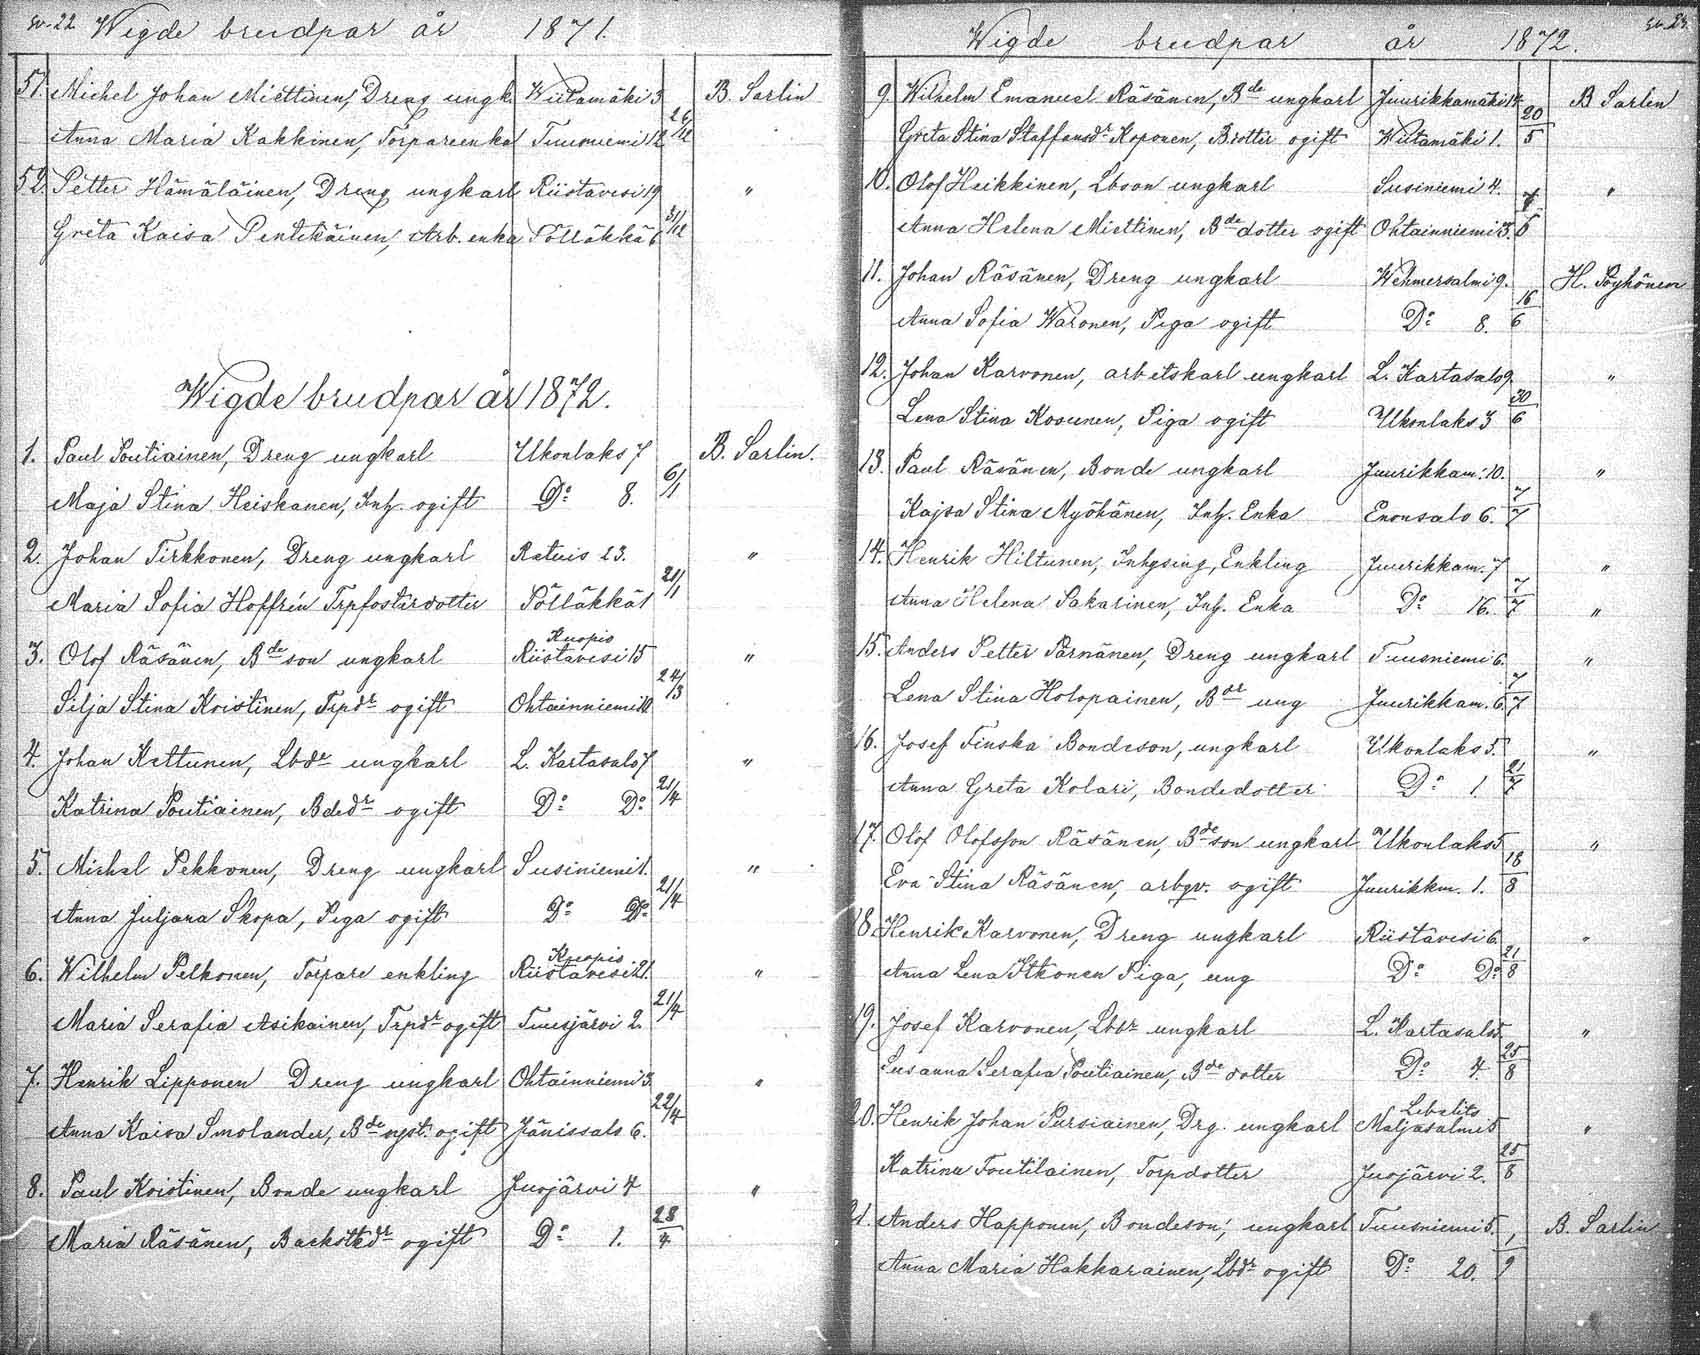 sv. 22 Wigde brudpar år 1871.
51. Michel Johan Miettinen, Dreng ungk. Wiitamäki 3 B. Sarlin
Anna Maria Kakkinen, Torpareenka Tuusniemi 12 26/12
52. Petter Hämäläinen, Dreng ungkarl Riistavesi 19 "
Greta Kaisa Pentikäinen, Arb. enka Pölläkkä 6 31/12
Wigde brudpar år 1872.
1. Paul Poutiainen, Dreng ungkarl Ukonlaks 7 B. Sarlin.
Maja Stina Heiskanen, Inh. ogift Do 8. 6/1
2. Johan Tirkkonen, Dreng ungkarl Ratuis 23. "
Maria Sofia Hoffrén Trpfosterdotter Pölläkkä 1 21/1
Kuopio
3. Olof Räsänen, Bde son ungkarl Riistavesi 15 "
Silja Stina Koistinen, Trpdr ogift Ohtainniemi 10 24/3
4. Johan Kettunen, Lbdr ungkarl L. Kartasalo 7 "
Katrina Poutiainen, Bdedr ogift Do Do 21/4
5. Michel Pekkonen, Dreng ungkarl Susiniemi 1. "
Anna Juljana Skopa, Piga ogift Do Do 21/4
Kuopio
6. Wilhelm Pelkonen, Torpare enkling Riistavesi 21. "
Maria Serafia Asikainen, Trpdr ogift Tuusjärvi 2. 21/4
7. Henrik Lipponen Dreng ungkarl Ohtainniemi 3. "
Anna Kaisa Smolander, Bde syst. ogift Jänissalo 6. 22/4
8. Paul Koistinen, Bonde ungkarl Juojärvi 4 "
Maria Räsänen, Backstkdr ogift Do 1. 28/4
Wigde brudpar år 1872. sv. 23.
9. Wilhelm Emanuel Räsänen, Bde ungkarl Juurikkamäki 14. B Sarlin
Greta Stina Staffansdr Koponen, Bdotter ogift Wiitamäki 1. 20/5
10. Olof Heikkinen, Lbson ungkarl Susiniemi 4. "
Anna Helena Miettinen, Bde dotter ogift Ohtainniemi 3.
11. Johan Räsänen, Dreng ungkarl Wehmersalmi 9. H. Pöyhönen
Anna Sofia Waronen, Piga ogift Do 8. 16/6
12. Johan Karvonen, arbetskarl ungkarl L. Kartasalo 9. "
Lena Stina Kosunen, Piga ogift Ukonlaks 3 30/6
13. Paul Räsänen, Bonde ungkarl Juurikkam: 10. "
Kajsa Stina Myöhänen, Inh. Enka Enonsalo 6. 7/7
14. Henrik Hiltunen, Inhysing, Enkling Juurikkam. 7 "
Anna Helena Sakarinen, Inh. Enka Do 16. 7/7 "
15. Anders Petter Pärnänen, Dreng ungkarl Tuusniemi 6. "
Lena Stina Holopainen, Bdr ung Juurikkam. 6. 7/7
16. Josef Finska Bondeson, ungkarl Ukonlaks 5. "
Anna Greta Kolari, Bondedotter Do 1. 21/7
17. Olof Olofsson Räsänen, Bde son ungkarl Ukonlaks 5 "
Eva Stina Räsänen, arbqv. ogift Juurikkm. 1. 18/8
18. Henrik Karvonen, Dreng ungkarl Riistavesi 6. "
Anna Lena Itkonen Piga, ung Do Do 21/8
19. Josef Karvonen, Lbdr ungkarl L. Kartasalo 5 "
Susanna Serafia Poutiainen, Bde dotter Do 4. 25/8
Libelits
20. Henrik Johan Pursiainen, Drg. ungkarl Maljasalmi 5 "
Katrina Toutilainen, Torpdotter Juojärvi 2. 25/8
21. Anders Happonen, Bondeson, ungkarl Tuusniemi 5. B. Sarlin
Anna Maria Hakkarainen, Lbdr ogift Do 20. 1/9